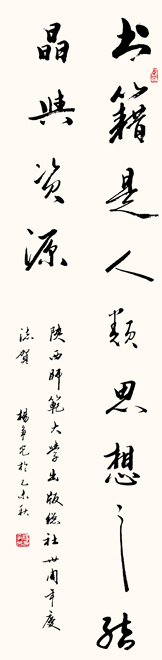 书籍是人类思想之结
晶与资源
陕西师范大学出版总社卅周年度
志贺
杨争光於乙未秋